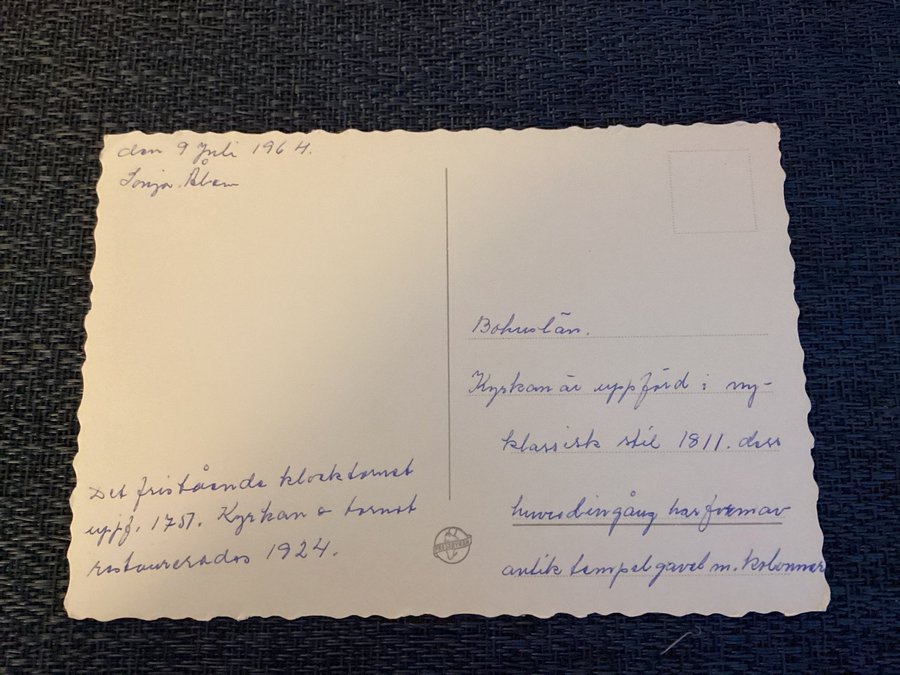 den 9 Juli 1964.
Sonja Åbom
Det fristående klocktornet
uppf. 1751. Kyrkan o tornet
restaurerades 1924.
Bohuslän.
Kyrkan är uppförd i ny-
klassisk stil 1811. dess
huvudingång har form av
antik tempelgavel m. kolonner